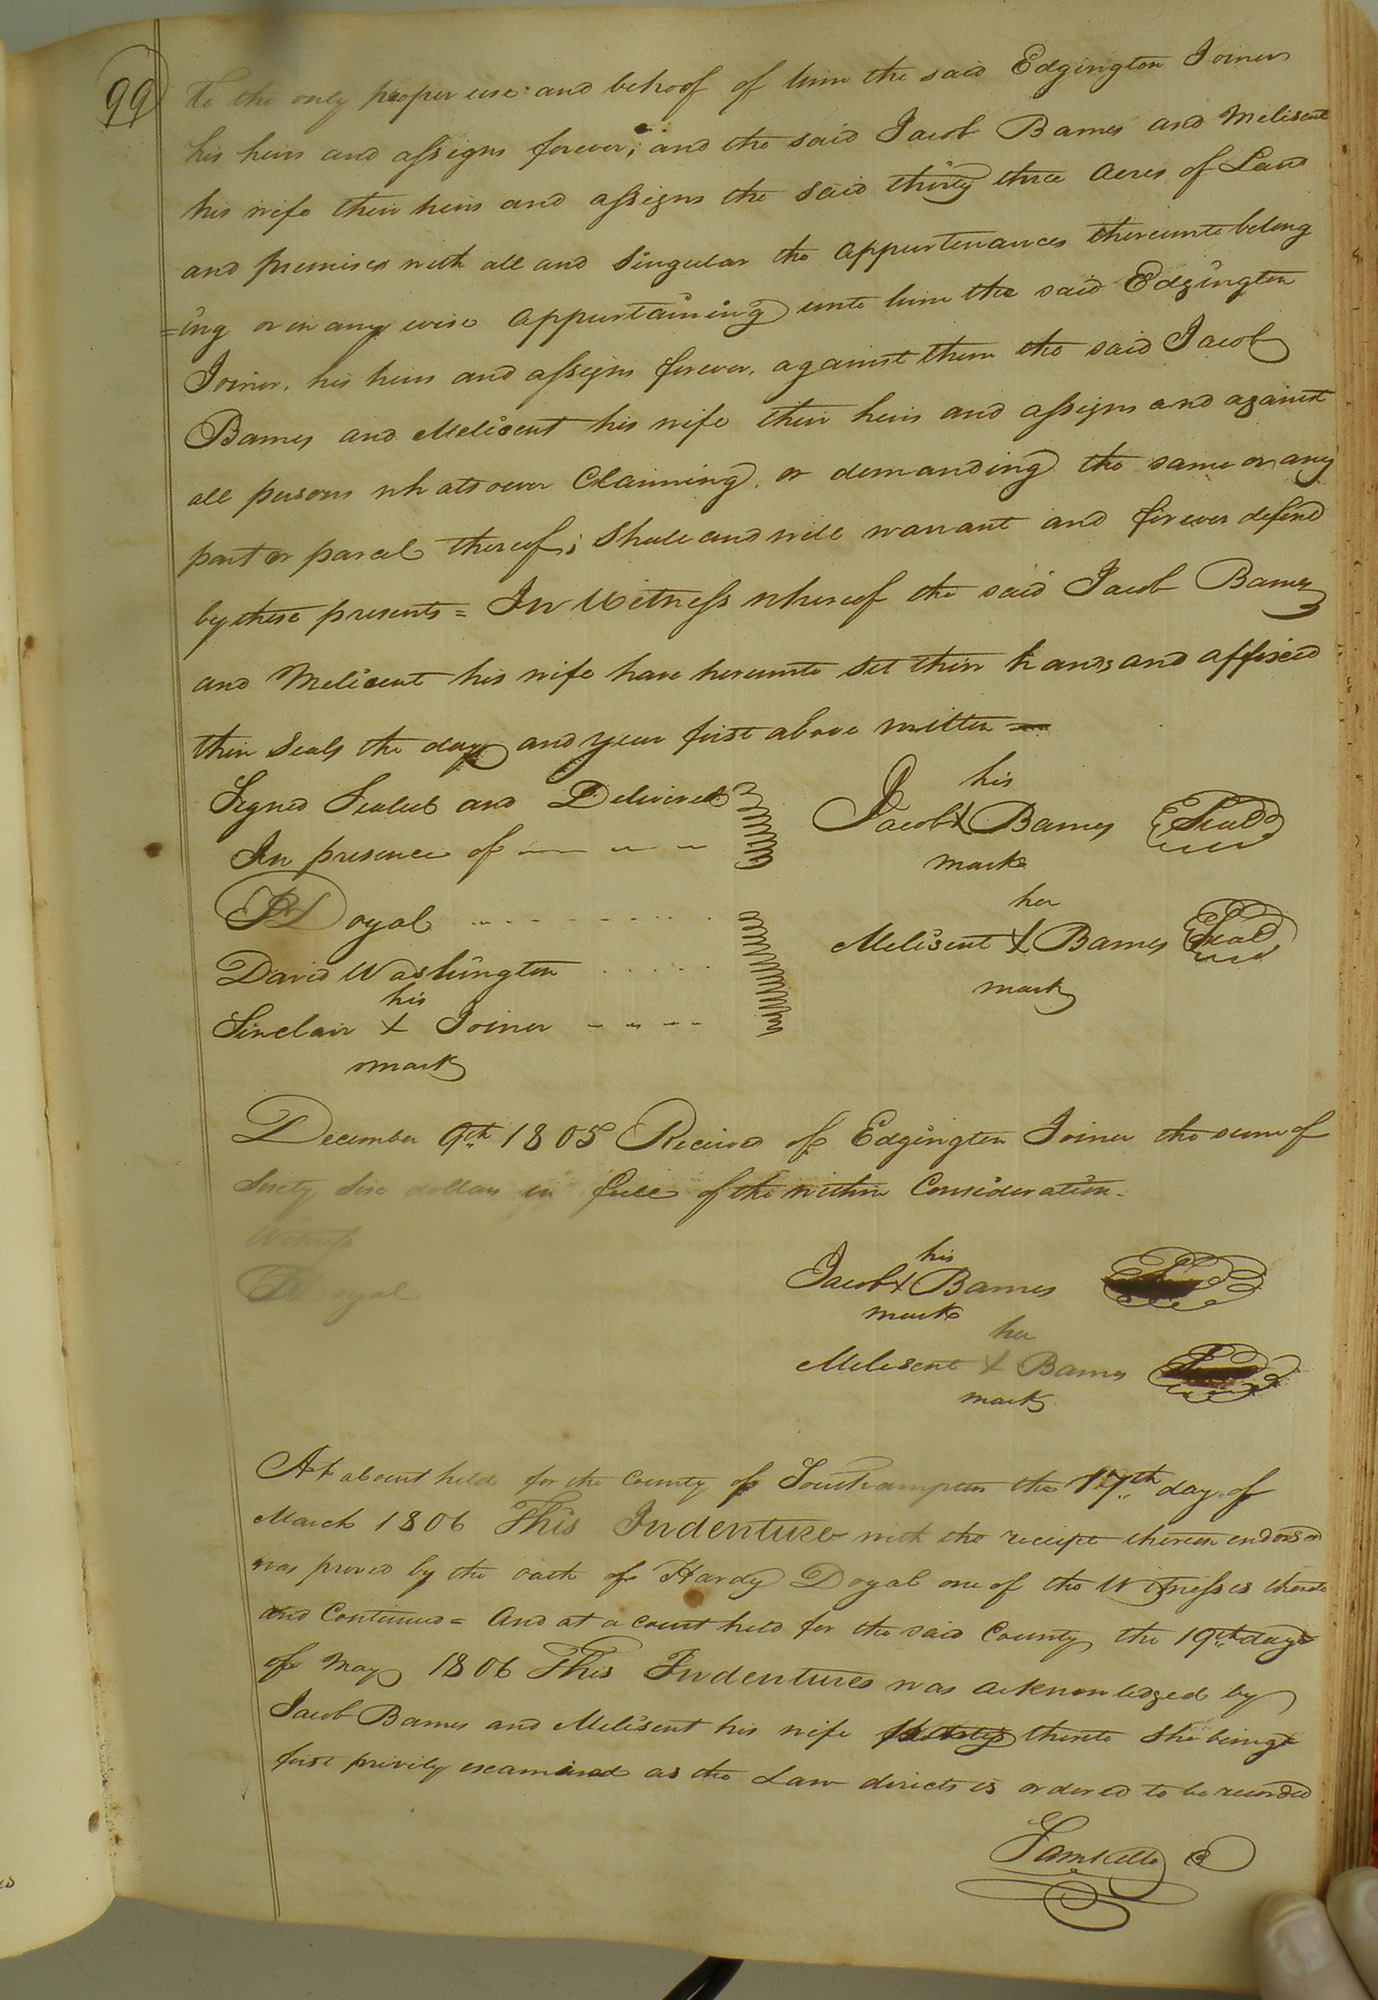 99
To the only proper use and behoof of him the said Edgington Joiner
his heirs and assigns forever; and the said Jacob Barnes and Melisent
his wife their heirs and assigns the said thirty three Acres of Land
and premises with all and Singular the Appurtenances thereunto belong
=ing or in any wise Appurtaining unto him the said Edgington
Joiner, his heirs and assigns forever, against them the said Jacob
Barnes and Melisent his wife their heirs and assigns and against
all persons whatsoever Claiming, or demanding the same or any
part or parcel thereof; Shall and will warrant and forever defend
by these presents = In Witness whereof the said Jacob Barnes
and Melisent his wife have hereunto set their hands and affixed
their Seals the day and year first above written =
Signed Sealed and Delivered
In presence of
H Doyal
David Washington
his
Sinclair X Joiner
mark
his
Jacob X Barnes Seal
mark
her
Melisent X Barnes Seal
mark
December 9th 1805 Received of Edgington Joiner the sum of
Sixty Six dollars in full of the within Consideration.
Witness
H Doyal
his
Jacob X Barnes
mark
her
Melisent X Barnes
mark
At a Court held for the County of Southampton the 17th day of
March 1806 This Indenture with the receipt thereon endorsed
was proved by the oath of Hardy Doyal one of the Witnesses thereto
and Continued = And at a Court held for the said County the 19th day
of May 1806 This Indentures was acknowledged by
Jacob Barnes and Melisent his wife thereto She being
first privily examined as the Law directs is ordered to be recorded
Sam Kello C